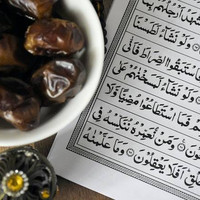 اَرْجُلُهُمْ بِمَا
وَلَوْ نَشَآءُ لَطَمَسْنَا
اسْتَبَقُوا الصِّرَاطَ فَاَنّٰى
وَلَوْ نَشَآءُ لَمَسَخْنٰهُمْ عَلٰى
فَمَا اسْتَطَاعُوْا مُضِيًّا وَّلَا
وَمَنْ نُّعَمِّرْهُ نُنَكِّسْهُ فِى
اَفَلَا يَعْقِلُوْنَ وَمَا عَلَّمْنٰهُ